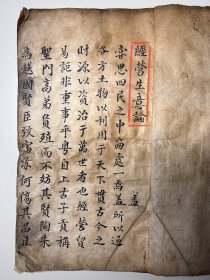 經營生意論
蓋
嘗思四民之中商處一焉蓋所以通
各方土物以利用于天下贯古今之
財源以資洽于萬世者也經營貿
易詎非重事乎粵自上古子貢稱
聖門高弟貨殖而不妨其賢陶朱
為越國賢臣致富
何傷其品且